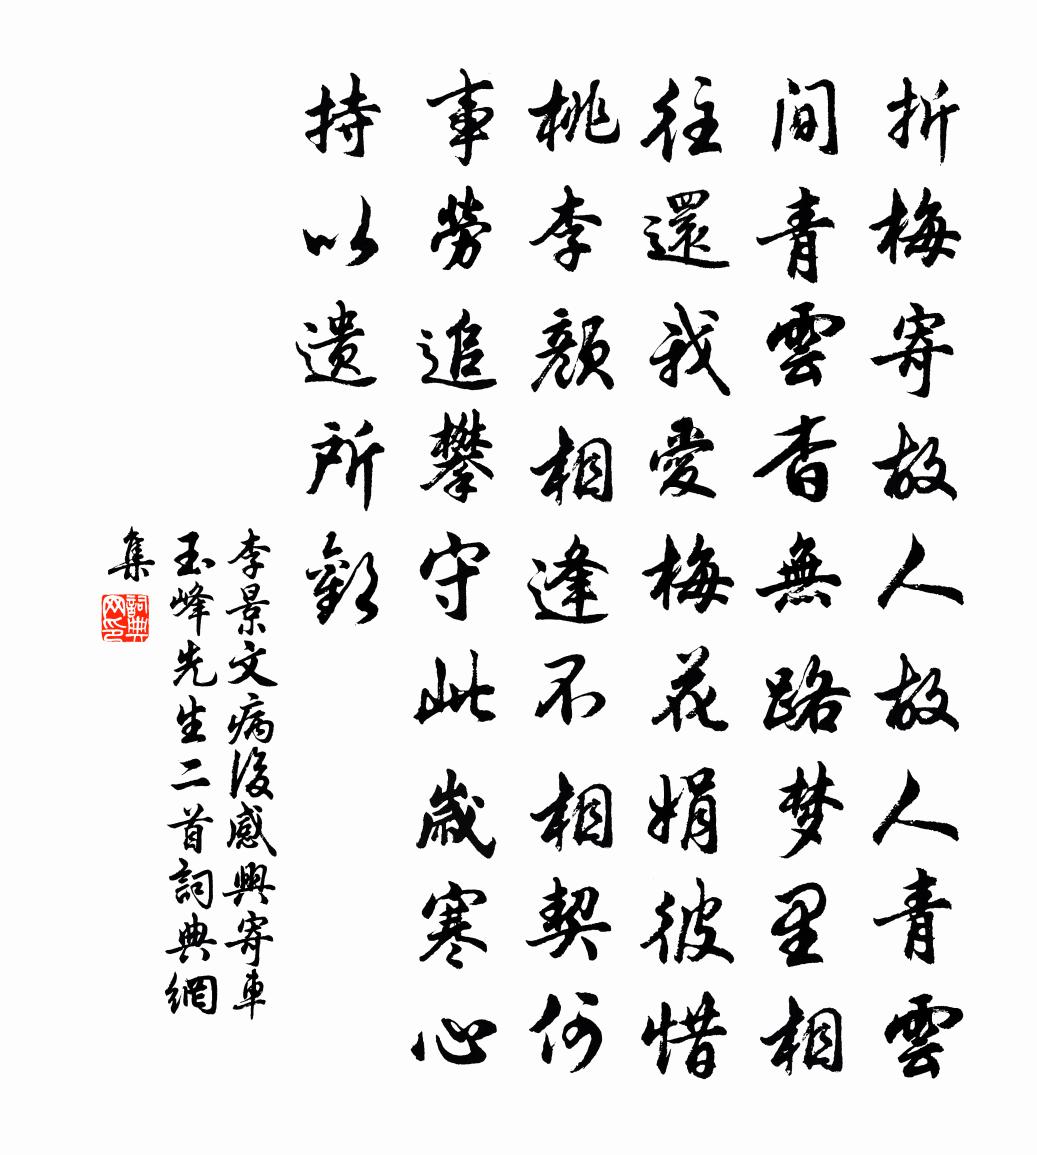 折梅寄故人故人青雲
間青雲杳無路梦里相
往還我愛梅花娟彼惜
桃李顏相逢不相契何
事勞追攀守此歲寒心
持以遺所歡
李景文病後感興寄車
玉峰先生二首詞典網
集
詞典
网印